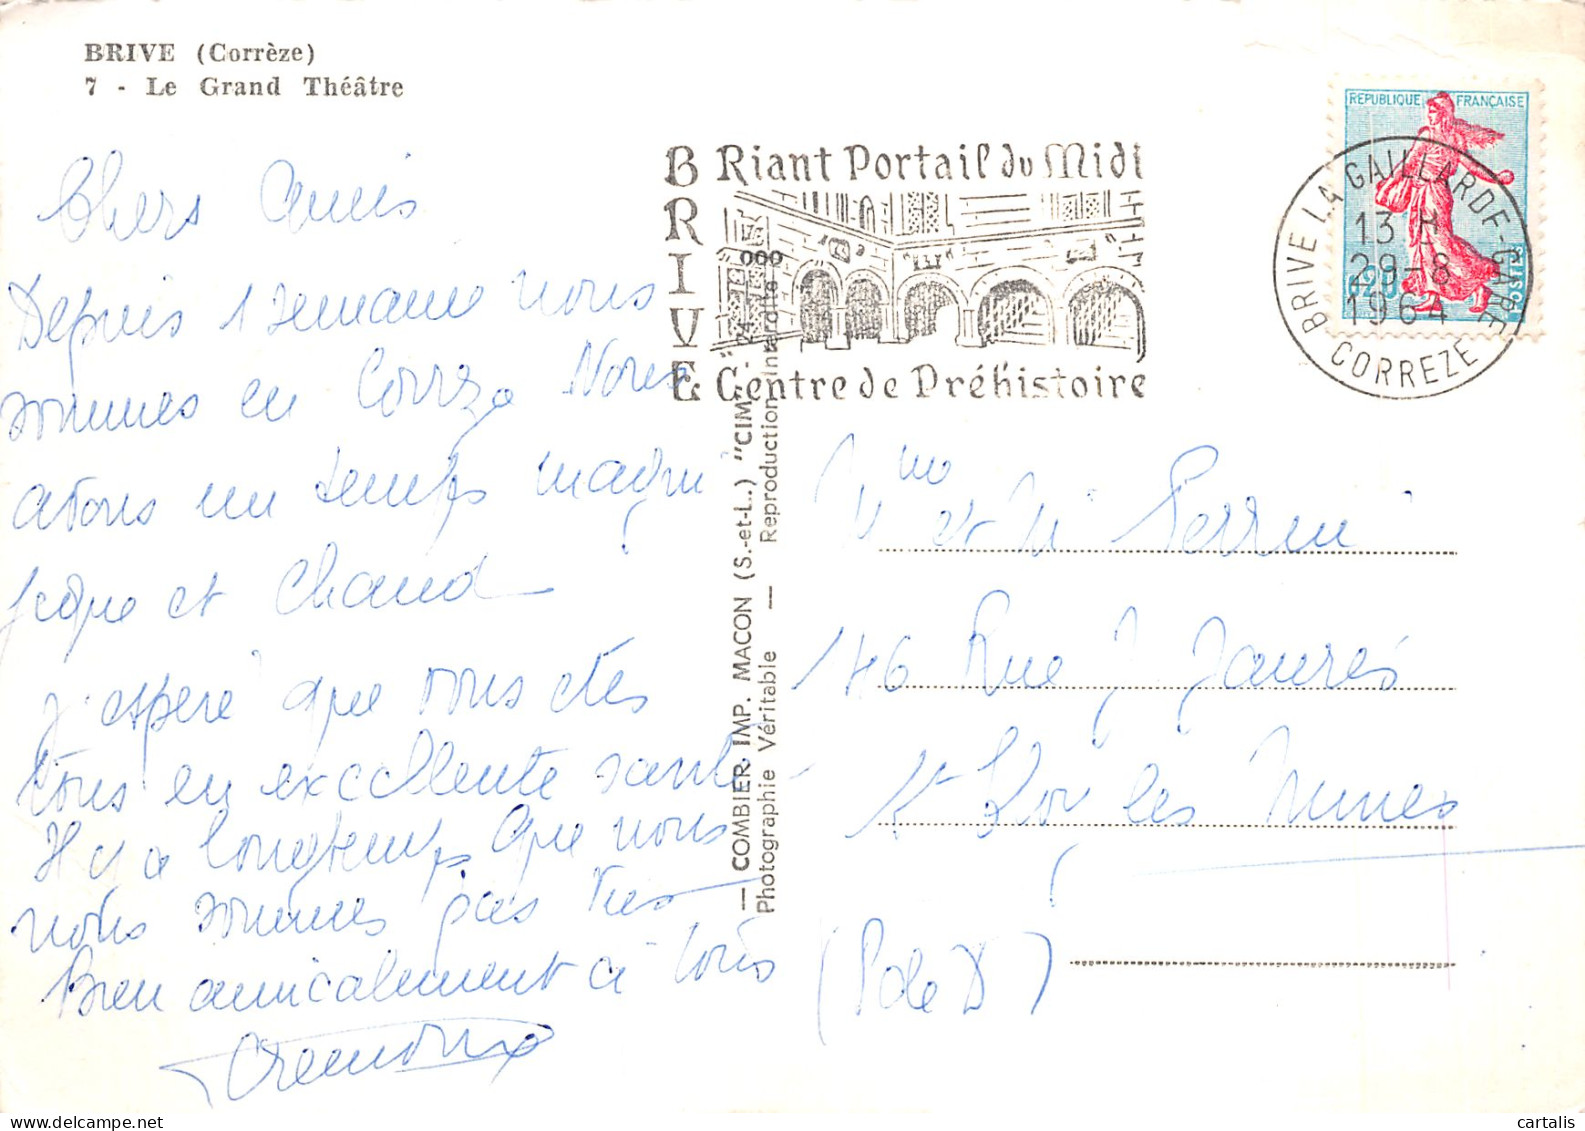 BRIVE (Corrèze)
7 - Le Grand Théâtre
Chers Amis
Depuis 1 semaine nous
sommes en Corrèze Nous
avons un temps magni
fique et Chaud
J'espère que vous êtes
tous en excellente santé
Il y a longtemps que nous
nous sommes pas vus
Bien amicalement à tous
BRIVE
Riant Portail du Midi
Centre de Préhistoire
REPUBLIQUE FRANÇAISE
0,20
POSTES
BRIVE LA GAILLARDE-GARE
13 H
29-8
1964
CORREZE
— COMBIER IMP. MACON (S.-et-L.) "CIM"
Photographie Véritable — Reproduction Interdite
Mme et Mr Perrin
146 Rue J Jaurès
St Eloy les Mines
(P de D)
cartalis